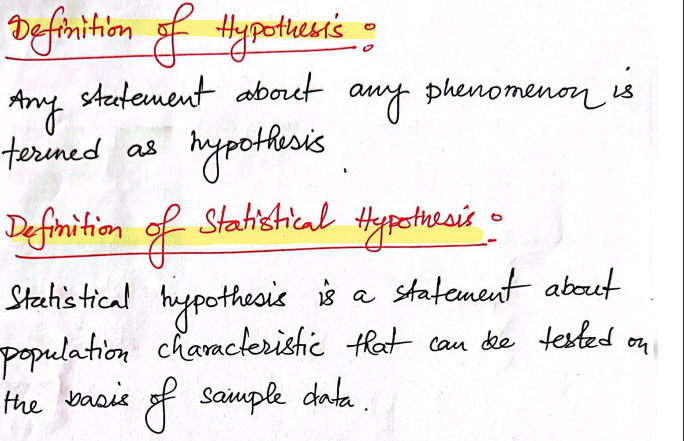 Definition of Hypothesis :
Any statement about any phenomenon is
termed as hypothesis.
Definition of Statistical Hypothesis :
Statistical hypothesis is a statement about
population characteristic that can be tested on
the basis of sample data.